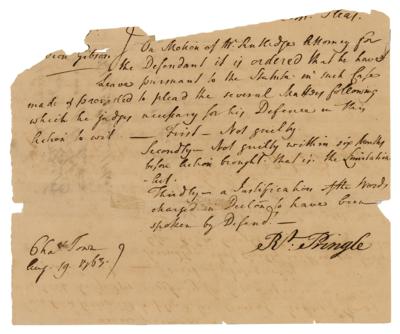 On Motion of Mr. Rutledge Attorney for
Gibson } the Defendant it is ordered that he have
Leave pursuant to the Statute in such Case
made & provided to plead the several Matters following
which he judges necessary for his Defence in this
Action to wit — First — Not guilty
Secondly — Not guilty within six Months
before Action brought that is the Limitation
Act.
Thirdly — a Justification of the Words
charged in Declon. to have been
spoken by Defend. —
Rt. Pringle
Chas. Town }
Aug. 19. 1763.